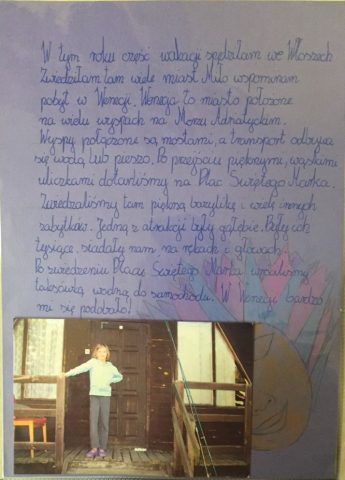 W tym roku część wakacji spędziłam we Włoszech
Zwiedziłam tam wiele miast. Miło wspominam
pobyt w Wenecji. Wenecja to miasto położone
na wielu wyspach na Morzu Adriatyckim.
Wyspy połączone są mostami, a transport odbywa
się wodą lub pieszo. Po przejściu pięknymi, wąskimi
uliczkami dotarliśmy na Plac Świętego Marka.
Zwiedzaliśmy tam piękną bazylikę i wiele innych
zabytków. Jedną z atrakcji były gołębie. Było ich
tysiące, siadały nam na rękach i głowach.
Po zwiedzeniu Placu Świętego Marka wróciliśmy
taksówką wodną do samochodu. W Wenecji bardzo
mi się podobało!